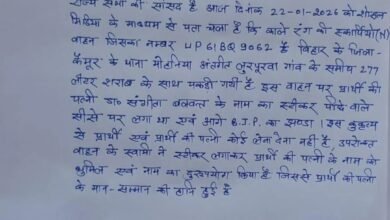 राज्य सभा की सांसद है आज दिनांक 22-01-2026 को शोसल
मिडिया के माध्यम से पता चला है कि काले रंग की स्कार्पियो(N)
वाहन जिसका नम्बर UP61BQ9062 है बिहार के जिला-
कैमूर के थाना मोहनिया अंतर्गत लुरपुरवा गांव के समीप 277
लीटर शराब के साथ पकड़ी गयी है इस वाहन पर प्रार्थी की
पत्नी डा० संगीता बलवन्त के नाम का स्टीकर पीछे वाले
सीसे पर लगा था एवं आगे B.J.P. का झण्डा। इस कुकृत्य
से प्रार्थी एवं प्रार्थी की पत्नी कोई लेना देना नहीं है उपरोक्त
वाहन के स्वामी ने स्टीकर लगाकर प्रार्थी की पत्नी के नाम को
धुमिल एवं नाम का दुरुपयोग किया है जिससे प्रार्थी की पत्नी
के मान-सम्मान की हानि हुई है